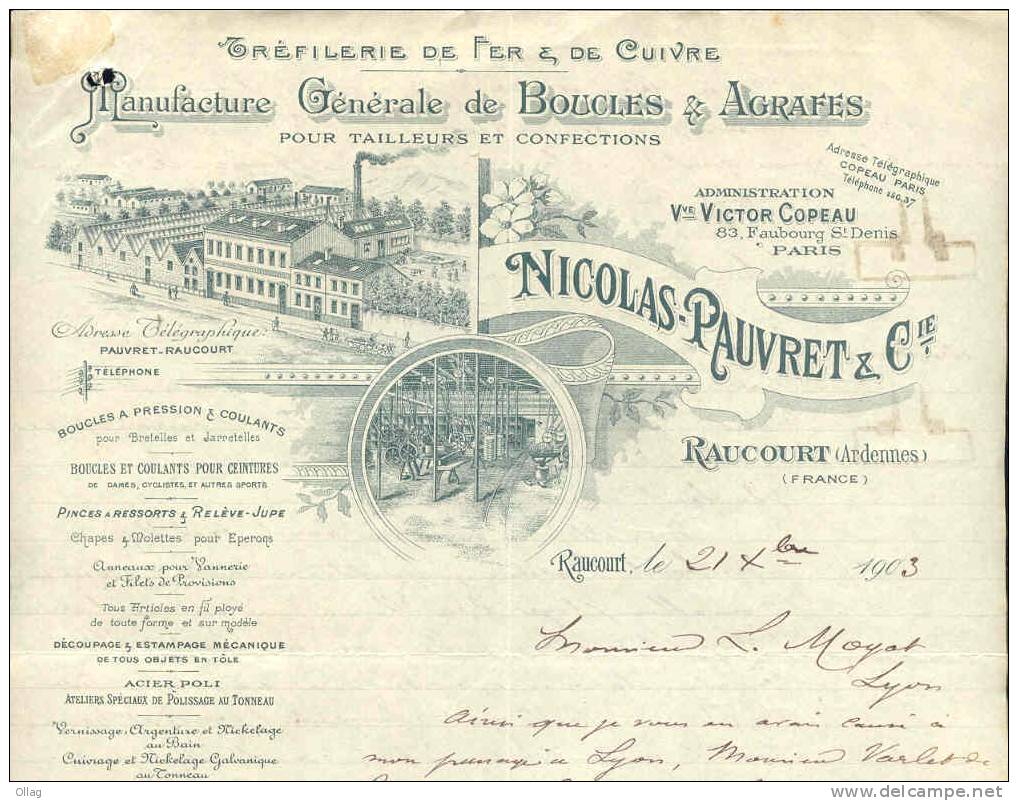 TRÉFILERIE DE FER & DE CUIVRE
Manufacture Générale de BOUCLES & AGRAFES
POUR TAILLEURS ET CONFECTIONS
Adresse Télégraphique
COPEAU PARIS
Téléphone
ADMINISTRATION
Vve VICTOR COPEAU
83, Faubourg St Denis
PARIS
NICOLAS-PAUVRET & CIE
Adresse Télégraphique:
PAUVRET-RAUCOURT
TÉLÉPHONE
RAUCOURT (Ardennes)
(FRANCE)
BOUCLES A PRESSION & COULANTS
pour Bretelles et Jarretelles
BOUCLES ET COULANTS POUR CEINTURES
DE DAMES, CYCLISTES, ET AUTRES SPORTS
PINCES A RESSORTS & RELÈVE-JUPE
Chapes & Molettes pour Eperons
Anneaux pour Vannerie
et Filets de Provisions
Tous Articles en fil ployé
de toute forme et sur modèle
DÉCOUPAGE & ESTAMPAGE MÉCANIQUE
DE TOUS OBJETS EN TÔLE
ACIER POLI
ATELIERS SPÉCIAUX DE POLISSAGE AU TONNEAU
Vernissage, Argenture et Nickelage
au Bain
Cuivrage et Nickelage Galvanique
au Tonneau
Raucourt, le 21 Xbre 1903
Monsieur L. Mogat
Lyon
Ainsi que je vous en avais causé à
mon passage à Lyon, Monsieur Varlet de
Ollag
www.delcampe.net